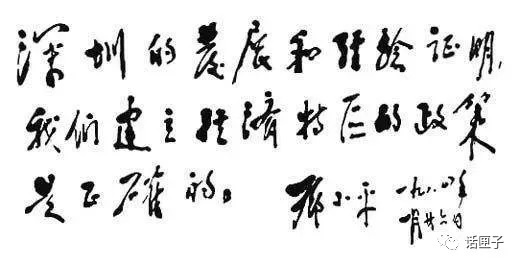 深圳的发展和经验证明，
我们建立经济特区的政策
是正确的。
邓小平
一九八四年
一月廿六日
话匣子